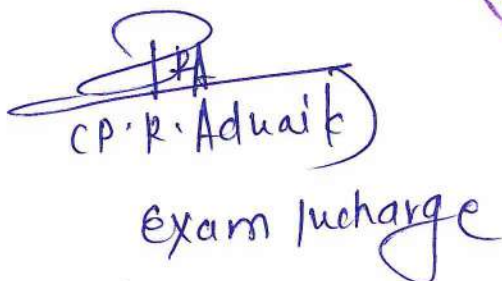 (P.R. Adnaik)
Exam Incharge